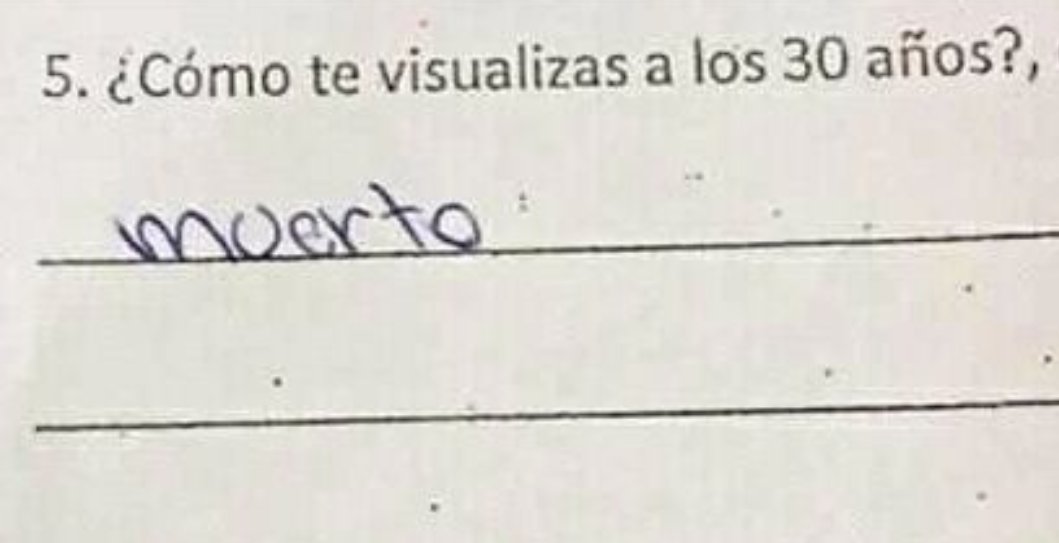 5. ¿Cómo te visualizas a los 30 años?,
muerto